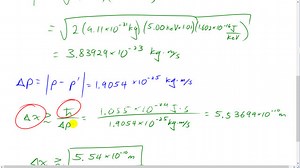 = √2(9.11×10⁻³¹kg)(5.00keV×1.01)(1.602×10⁻¹⁶ J/keV)
= 3.83929×10⁻²³ kg·m/s
Δp = |p - p'| = 1.9054×10⁻²⁵ kg·m/s
Δx ≥ ħ/Δp = 1.055×10⁻³⁴ J·s / 1.9054×10⁻²⁵ kg·m/s = 5.53699×10⁻¹⁰ m
Δx ≥ 5.54×10⁻¹⁰ m